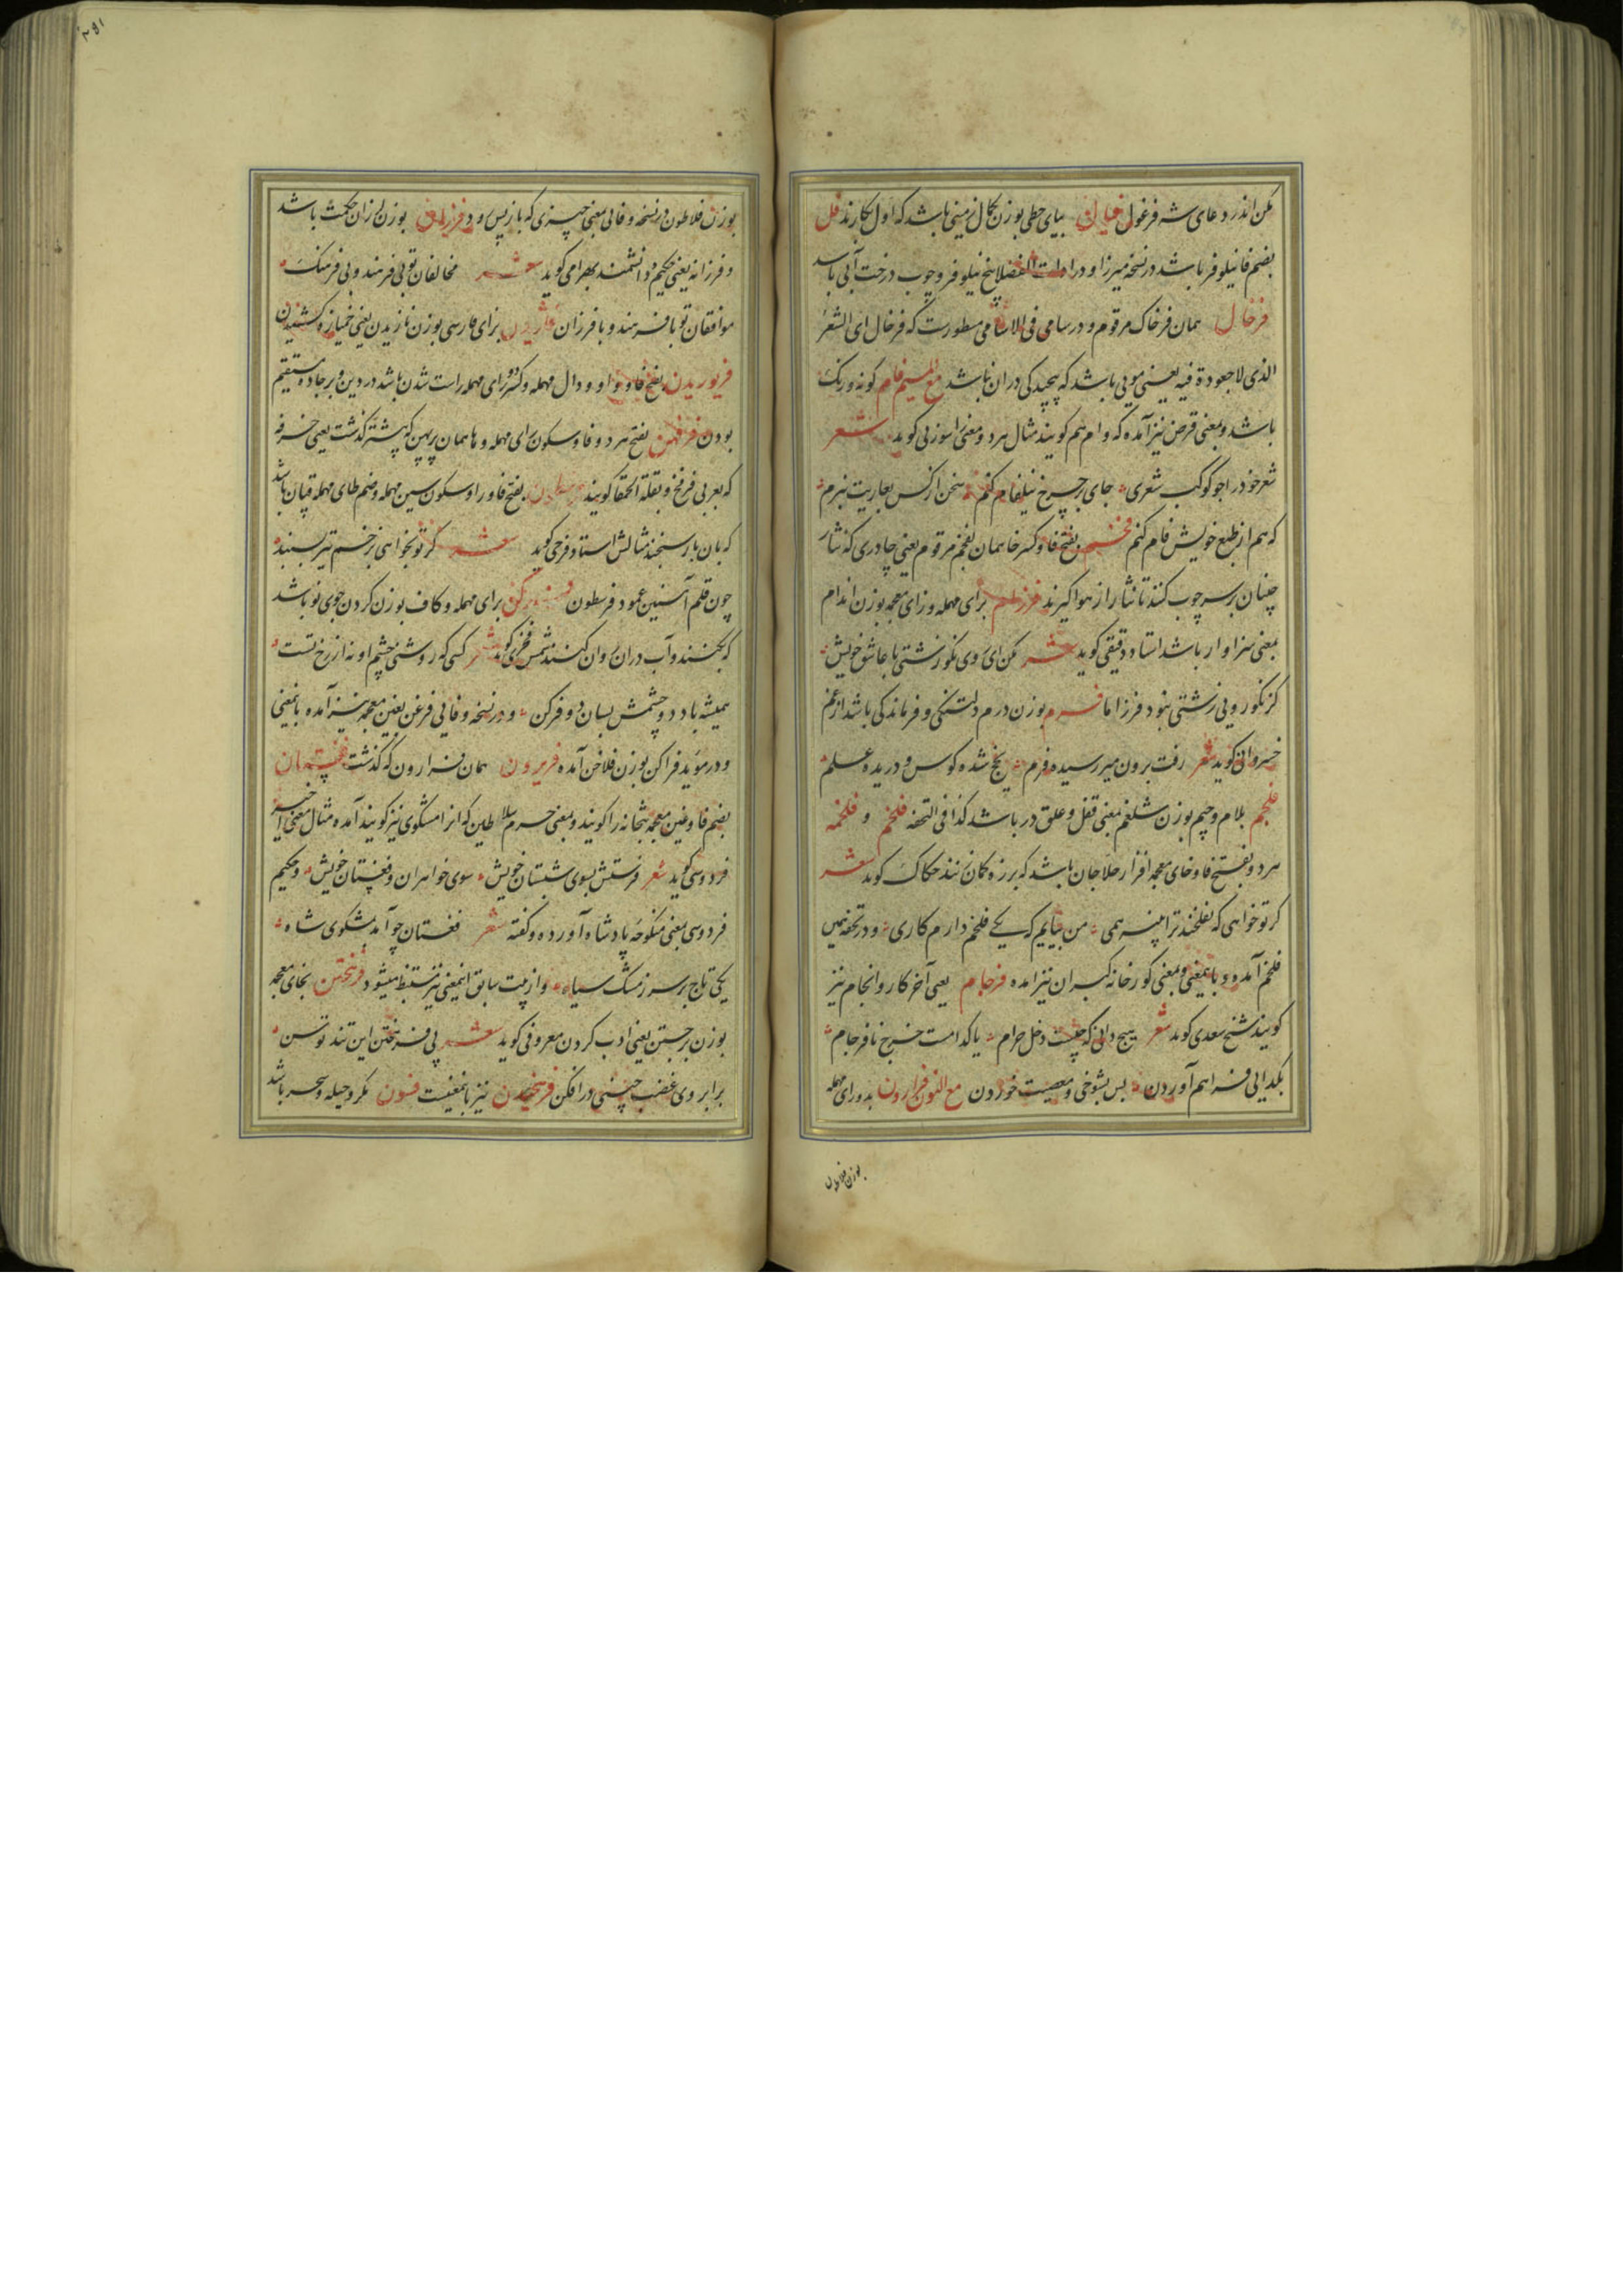 مکن اندر دعای شه فرغول فیال بیای حطی بوزن نجال زمینی باشد که اول بکارند فل
بضم فا نیلوفر باشد در نسخه میرزا و در ادات الفضلا بیخ نیلوفر و چوب درخت آبی باشد
فرخال همان فرخاک مرقوم و در سامی فی الاسامی مسطورست که فرخال ای الشعر
الذی لا جعودة فیه یعنی مویی باشد که پیچیدگی دران نباشد مع المیم فام گونه و رنگ
باشد و بمعنی قرض نیز آمده که وام هم گویند مثال هر دو معنی سوزنی گوید شعر
شعر خود را چو کوکب شعری جای بر چرخ نیلفام کنم سخن از کس بعاریت نبرم
که هم از طبع خویش فام کنم فخم بفتح فا و کسر خا همان لفخم مرقوم یعنی چادری که نثار
چنان بر سر چوب کنند تا نثار از هوا گیرند فرزام برای مهمله و زای معجمه بوزن اندام
بمعنی سزاوار باشد استاد دقیقی گوید شعر مکن ای روی نکو زشتی با عاشق خویش
کز نکورویی زشتی نبود فرزاما فرم بوزن درم دلتنگی و فرماندگی باشد از غم
خسروانی گوید شعر رفت برون میر رسیده فرم پخج شده کوس و دریده علم
فلجم بلام و جیم بوزن شلغم بمعنی قفل و غلق در باشد کذا فی التحفه فلخم و فلخمه
هر دو بفتح فا و خای معجمه افزار حلاجان باشد که بر زه کمان زنند حکاک گوید شعر
گر تو خواهی که بفلخند ترا پنبه همی من بیایم که یکی فلخم دارم کاری و در تحفه همین
فلخم آمده و باینمعنی و بمعنی گورخانه گبران نیز آمده فرجام یعنی آخر کار و انجام نیز
گویند شیخ سعدی گوید شعر هیچ دانی که چیست دخل حرام یا کدامست خرج نافرجام
بگدایی فراهم آوردن پس بشوخی و معصیت خوردن مع النون فرارون بدو رای مهمله
بوزن فلاطون
۱۹۲
بوزن فلاطون در نسخه وفائی بمعنی چیزی که باز پس رود فرزان بوزن لرزان حکمت باشد
و فرزانه یعنی حکیم و دانشمند بهرامی گوید شعر مخالفان تو بی فرهند و بی فرهنگ
موافقان تو با فرهند و با فرزان فاژیدن برای فارسی بوزن نازیدن یعنی خمیازه کشیدن
فریوریدن بفتح فا و واو و دال مهمله و کسر رای مهمله راست شدن باشد در دین و بر جاده مستقیم
بودن فرفهن بفتح هر دو فا و سکون رای مهمله و ها همان پرپهن که پیشتر گذشت یعنی خرفه
که بعربی فرفخ و بقلة الحمقا گویند فرسطون بفتح فا و را و سکون سین مهمله و ضم طای مهمله قپان باشد
که بان بار سنجند مثالش استاد فرخی گوید شعر گر تو بخواهی بزخم تیر بسنبد
چون قلم آسنین عمود فرسطون فرکن برای مهمله و کاف بوزن کردن جوی نو باشد
که بکنند و آب دران روان کنند شمس فخری گوید شعر کسی که روشنی چشم او نه از رخ تست
همیشه باد دو چشمش بسان دو فرکن و در نسخه وفائی فرغن بغین معجمه نیز آمده باینمعنی
و در موید فراکن بوزن فلاخن آمده فریرون همان فرارون که گذشت فغستان
بضم فا و غین معجمه بتخانه را گویند و بمعنی حرم سلاطین که انرا مشکوی نیز گویند آمده مثال معنی اخیر
فردوسی گوید شعر فرستش بسوی شبستان خویش سوی خواهران و فغستان خویش و حکیم
فردوسی بمعنی منکوحه پادشاه آورده و گفته شعر فغستان چو آمد بمشکوی شاه
یکی تاج بر سر ز مشک سیاه و از بیت سابق اینمعنی نیز مستنبط میشود فرختن بخای معجمه
بوزن رجستن یعنی ادب کردن معروفی گوید شعر پی فرهختن این تند توسن
بر ابروی غضب چینی در افکن فرهخیدن نیز باینمعنیست فسون مکر و حیله و سحر باشد